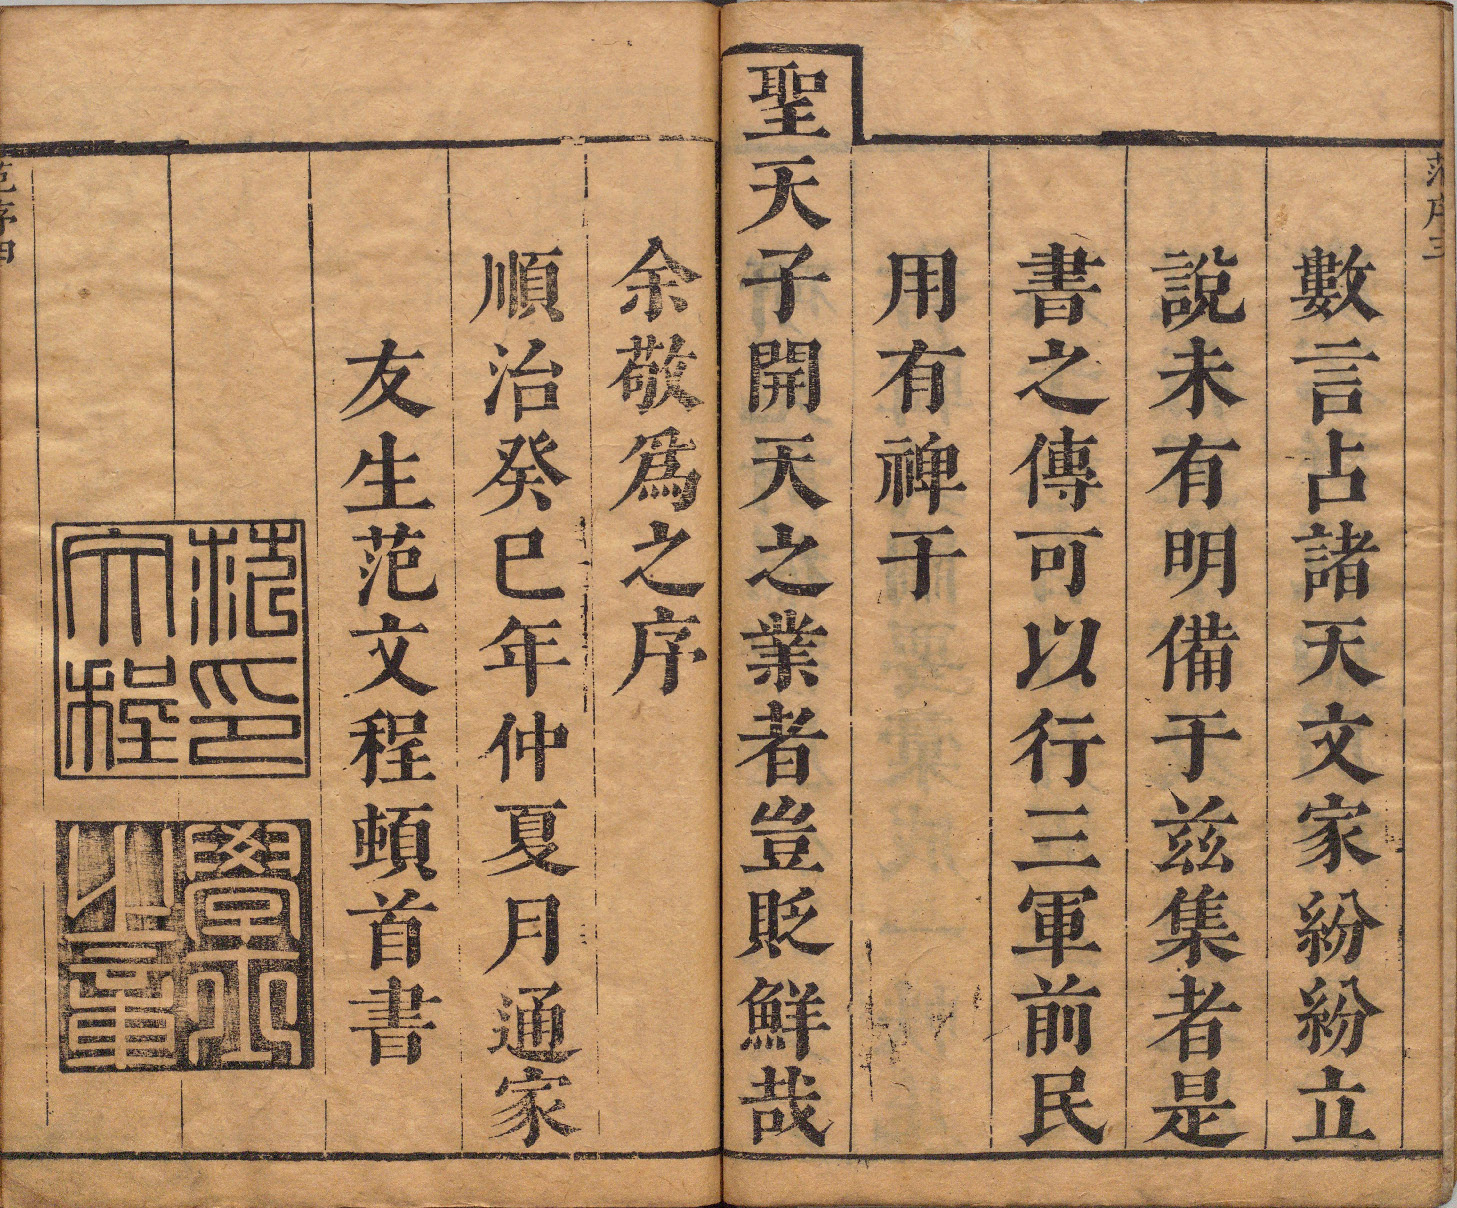 范序三
數言占諸天文家紛紛立
說未有明備于茲集者是
書之傳可以行三軍前民
用有裨于
聖天子開天之業者豈貶鮮哉
余敬爲之序
順治癸巳年仲夏月通家
友生范文程頓首書
范印
文程
學士
之章
范序四